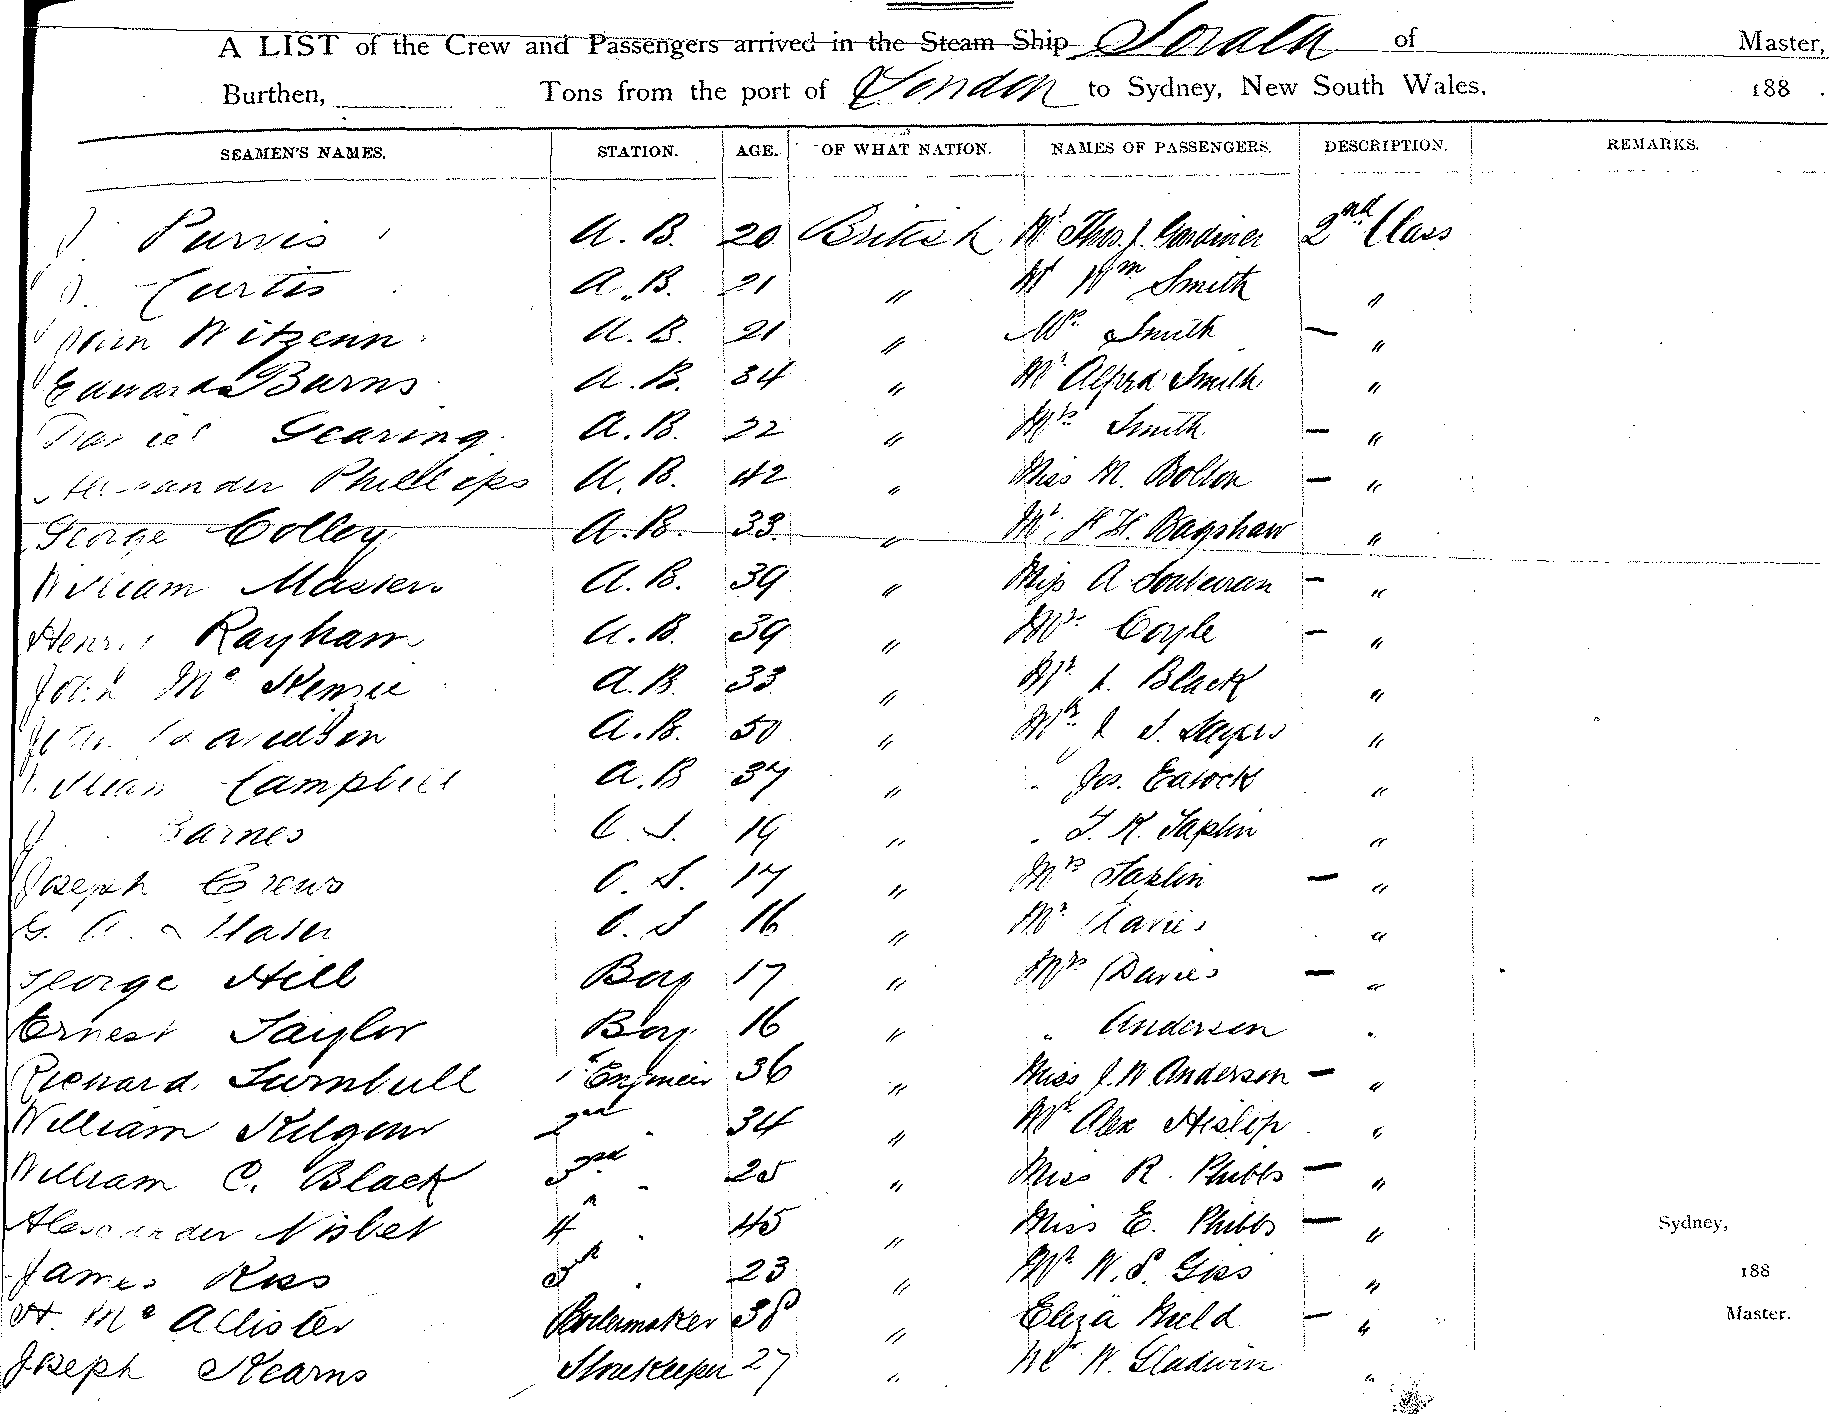 A LIST of the Crew and Passengers arrived in the Steam Ship Sorata of Master,
Burthen, Tons from the port of London to Sydney, New South Wales, 188 .
SEAMEN'S NAMES. STATION. AGE. OF WHAT NATION. NAMES OF PASSENGERS. DESCRIPTION. REMARKS.
J. Purvis A. B. 20 British Mr Thos. J. Gardiner 2nd Class
Curtis A. B. 21 " Mr Wm Smith "
A. B. 21 " Mrs Smith — "
Edward Burns A. B. 34 " Mr Alfred Smith "
Daniel Gearing A. B. 22 " Mrs Smith — "
Alexander Phillips A. B. 42 " Miss M. Bolton — "
George Colley A. B. 33 " Mr H. Bagshaw "
William Masters A. B. 39 " Miss A — "
Henry Rayham A. B. 39 " Mrs Coyle — "
John Mc Kenzie A. B. 33 " Mr Black "
John A. B. 50 " Mr "
William Campbell A. B 37 " " Jos. "
J Barnes O. S. 19 " " T. K. Taplin "
Joseph Crews O. S. 17 " Mrs Taplin — "
G. O. S 16 " Mr Davies "
George Hill Boy 17 " Mrs Davies — "
Ernest Taylor Boy 16 " " Anderson "
Richard Turnbull 1st Engineer 36 " Miss J. W Anderson — "
William Kilgour 2nd " 34 " Mr Alex Hislop "
William C. Black 3rd " 25 " Miss R. Phibbs — "
Alexander Nisbet 4th " 45 " Miss E. Phibbs — " Sydney,
James Ross 5th " 23 " Mr W. S. Goss " 188
H. Mc Allister Boilermaker 38 " Eliza — " Master.
Joseph Kearns Storekeeper 27 " Mr W. Gladwin "